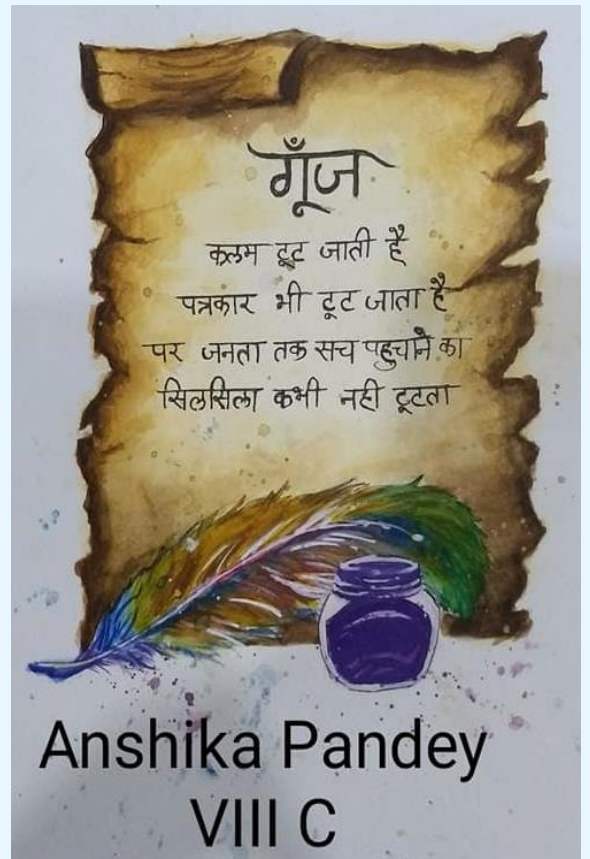 गूँज
कलम टूट जाती है
पत्रकार भी टूट जाता है
पर जनता तक सच पहुचाने का
सिलसिला कभी नही टूटता
Anshika Pandey
VIII C